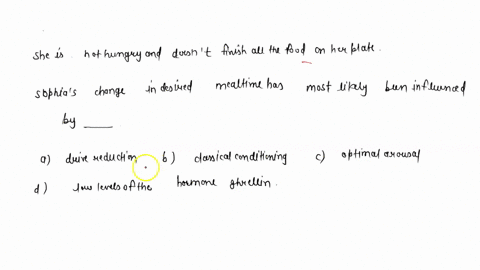 she is hot hungry and doesn't finish all the food on her plate.
sophia's change in desired mealtime has most likely been influenced
by ____
a) drive reduction b) classical conditioning c) optimal arousal
d) low levels of the hormone ghrelin.